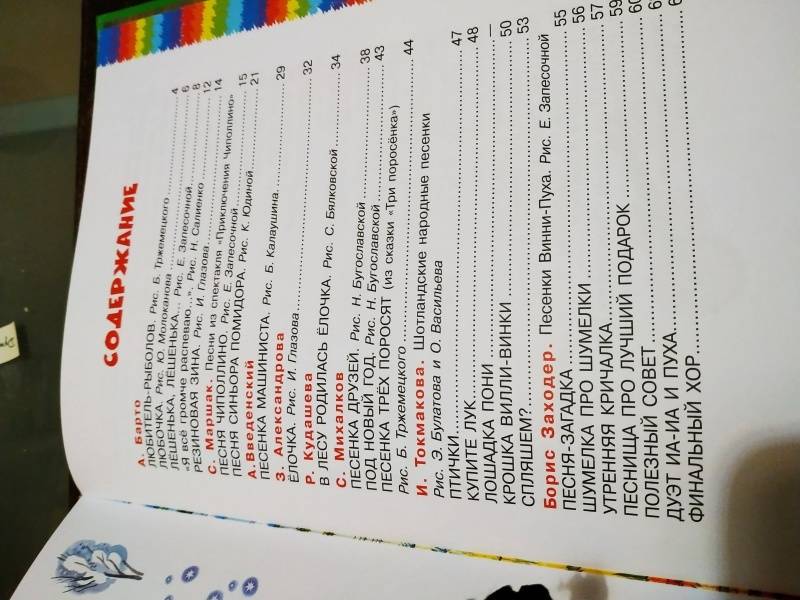 СОДЕРЖАНИЕ
А. Барто
ЛЮБИТЕЛЬ-РЫБОЛОВ. Рис. Б. Тржемецкого 4
ЛЮБОЧКА. Рис. Ю. Молоканова 6
ЛЁШЕНЬКА, ЛЁШЕНЬКА... Рис. Е. Запесочной 8
«Я всё громче распеваю...». Рис. Н. Салиенко 12
РЕЗИНОВАЯ ЗИНА. Рис. И. Глазова 14
С. Маршак. Песни из спектакля «Приключения Чиполлино»
ПЕСНЯ ЧИПОЛЛИНО. Рис. Е. Запесочной 15
ПЕСНЯ СИНЬОРА ПОМИДОРА. Рис. К. Юдиной 21
А. Введенский
ПЕСЕНКА МАШИНИСТА. Рис. Б. Калаушина 29
З. Александрова
ЁЛОЧКА. Рис. И. Глазова 32
Р. Кудашева
В ЛЕСУ РОДИЛАСЬ ЁЛОЧКА. Рис. С. Бялковской 34
С. Михалков
ПЕСЕНКА ДРУЗЕЙ. Рис. Н. Бугославской 38
ПОД НОВЫЙ ГОД. Рис. Н. Бугославской 43
ПЕСЕНКА ТРЁХ ПОРОСЯТ (из сказки «Три поросёнка»)
Рис. Б. Тржемецкого 44
И. Токмакова. Шотландские народные песенки
Рис. Э. Булатова и О. Васильева
ПТИЧКИ 47
КУПИТЕ ЛУК 48
ЛОШАДКА ПОНИ —
КРОШКА ВИЛЛИ-ВИНКИ 50
СПЛЯШЕМ? 53
Борис Заходер. Песенки Винни-Пуха. Рис. Е. Запесочной
ПЕСНЯ-ЗАГАДКА 55
ШУМЕЛКА ПРО ШУМЕЛКИ 56
УТРЕННЯЯ КРИЧАЛКА 57
ПЕСНИЩА ПРО ЛУЧШИЙ ПОДАРОК 59
ПОЛЕЗНЫЙ СОВЕТ 60
ДУЭТ ИА-ИА И ПУХА
ФИНАЛЬНЫЙ ХОР